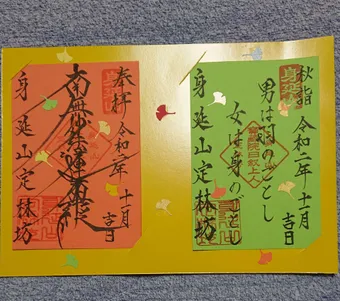 奉拝 令和二年十一月
吉日
南無妙法蓮華経
身延山定林坊
秋詣 令和二年十一月
吉日
男は羽のごとし
女は身のごとし
身延山定林坊